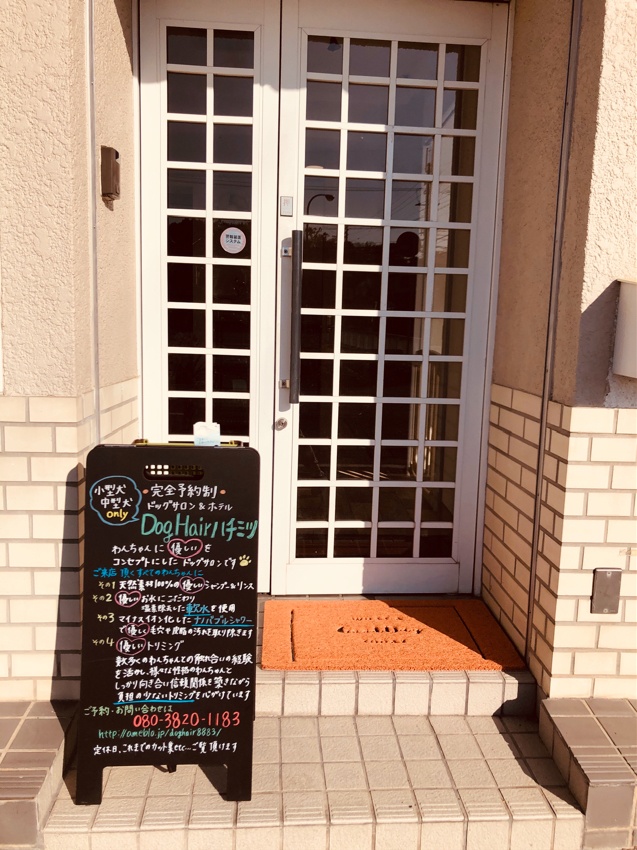 防犯録画
システム
小型犬
中型犬
only
・完全予約制・
ドッグサロン&ホテル
Dog Hair ハチミツ
わんちゃんに 優しい を
コンセプトにした ドッグサロンです
ご来店 頂くすべてのわんちゃんに
その1 天然素材100%の優しいシャンプー&リンス
その2 優しいお水にこだわり
塩素除去した軟水を使用
その3 マイナスイオン化したナノバブルシャワー
で優しく毛穴や皮脂の汚れを取り除きます
その4 優しいトリミング
数多くのわんちゃんとの触れ合いの経験
を活かし、様々な性格のわんちゃんと
しっかり向き合い信頼関係を築きながら
負担の少ないトリミングを心がけています
ご予約・お問い合わせは
080-3820-1183
http://ameblo.jp/doghair8883/
定休日、これまでのカット集など...ご覧頂けます